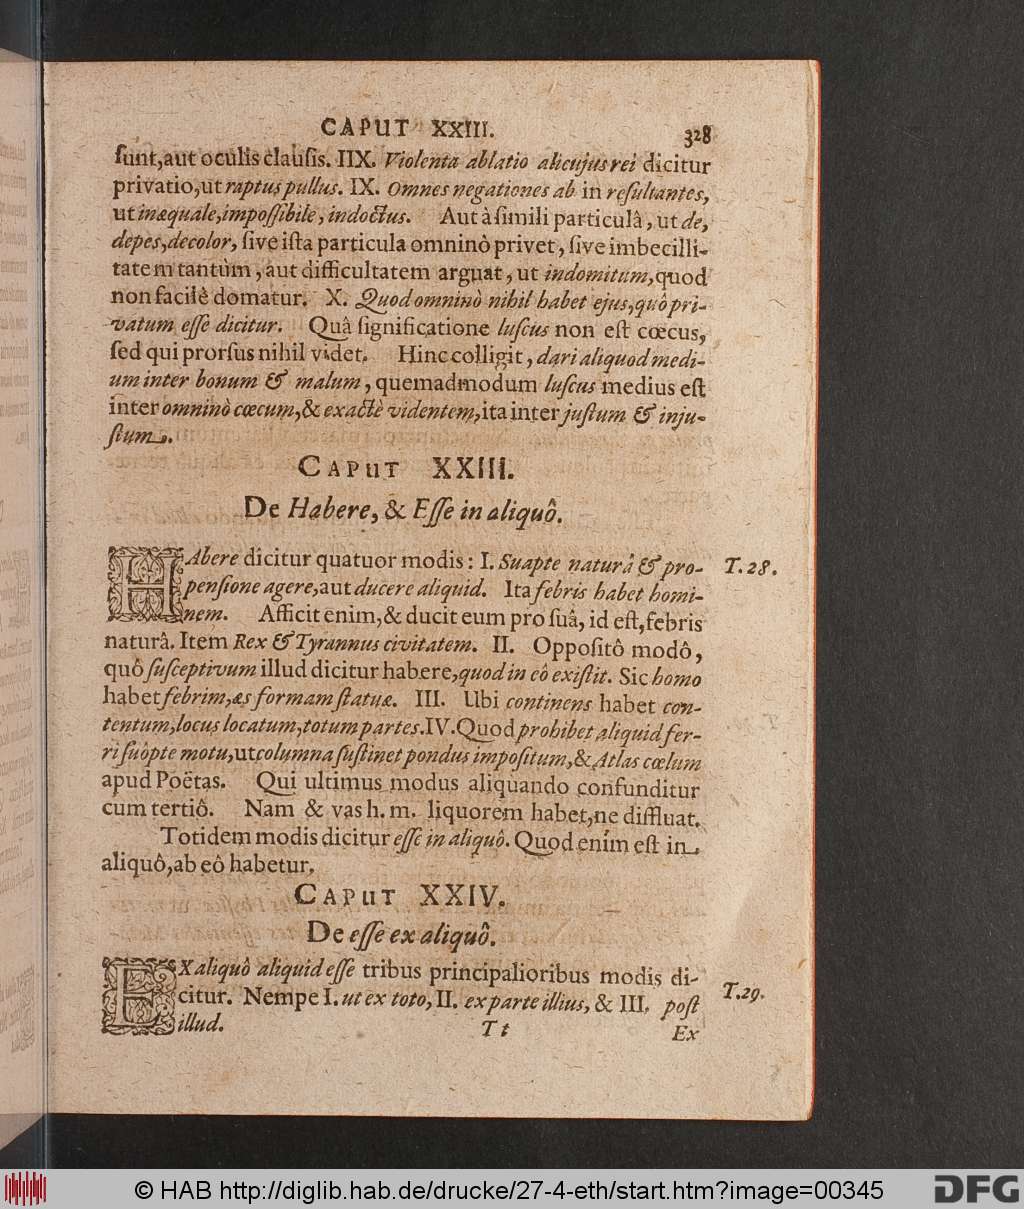 CAPUT XXIII. 328
ſunt,aut oculis clauſis. IIX. Violenta ablatio alicujus rei dicitur
privatio,ut raptus pullus. IX. Omnes negationes ab in reſultantes,
ut inæquale,impoſſibile, indoctus. Aut à ſimili particulâ, ut de,
depes,decolor, ſive iſta particula omninò privet, ſive imbecilli-
tatem tantùm, aut difficultatem arguat, ut indomitum,quod
non facilè domatur. X. Quod omninò nihil habet ejus,quô pri-
vatum eſſe dicitur. Quâ ſignificatione luſcus non eſt cœcus,
ſed qui prorſus nihil videt. Hinc colligit, dari aliquod medi-
um inter bonum & malum, quemadmodum luſcus medius eſt
inter omninò cœcum,& exactè videntem,ita inter juſtum & inju-
ſtum.
CAPUT XXIII.
De Habere, & Eſſe in aliquô.
HAbere dicitur quatuor modis: I. Suapte naturâ & pro- T. 28.
penſione agere,aut ducere aliquid. Ita febris habet homi-
nem. Afficit enim,& ducit eum pro ſuâ, id eſt,febris
naturâ. Item Rex & Tyrannus civitatem. II. Oppoſitô modô,
quô ſuſceptivum illud dicitur habere,quod in eô exiſtit. Sic homo
habet febrim,æs formam ſtatuæ. III. Ubi continens habet con-
tentum,locus locatum,totum partes. IV. Quod prohibet aliquid fer-
ri ſuôpte motu,ut columna ſuſtinet pondus impoſitum,& Atlas cœlum
apud Poëtas. Qui ultimus modus aliquando confunditur
cum tertiô. Nam & vas h. m. liquorem habet,ne diffluat.
Totidem modis dicitur eſſe in aliquô. Quod enim eſt in
aliquô,ab eô habetur.
CAPUT XXIV.
De eſſe ex aliquô.
EX aliquô aliquid eſſe tribus principalioribus modis di-
citur. Nempe I. ut ex toto, II. ex parte illius, & III. poſt T.29.
illud. Tt Ex
© HAB http://diglib.hab.de/drucke/27-4-eth/start.htm?image=00345 DFG